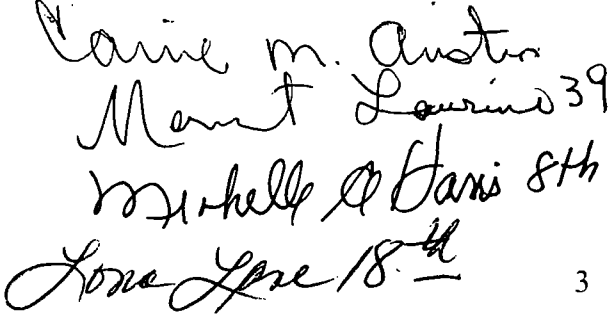 Carrie M. Austin
Laurino 39
Michelle A Harris 8th
Lona Lane 18th
3